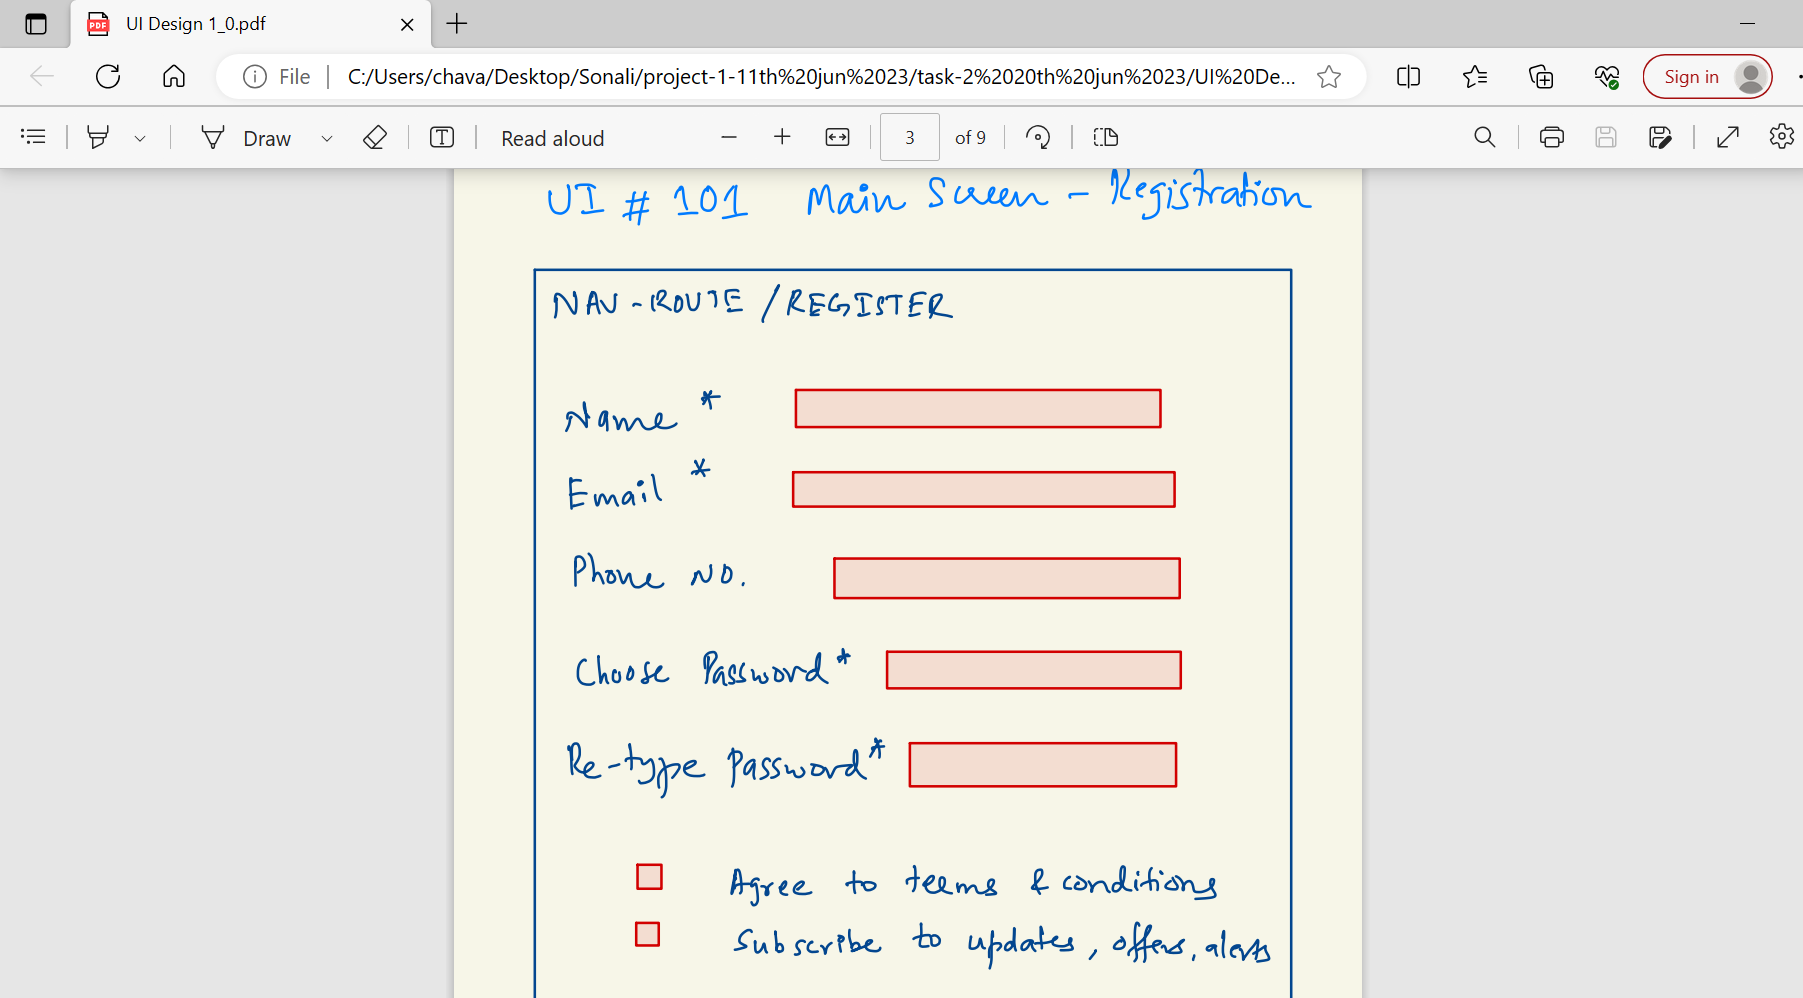 UI Design 1_0.pdf
File C:/Users/chava/Desktop/Sonali/project-1-11th%20jun%2023/task-2%2020th%20jun%2023/UI%20De... Sign in
Draw Read aloud 3 of 9
UI # 101 Main Screen - Registration
NAV-ROUTE /REGISTER
Name *
Email *
Phone NO.
Choose Password *
Re-type Password *
Agree to terms & conditions
Subscribe to updates, offers, alerts